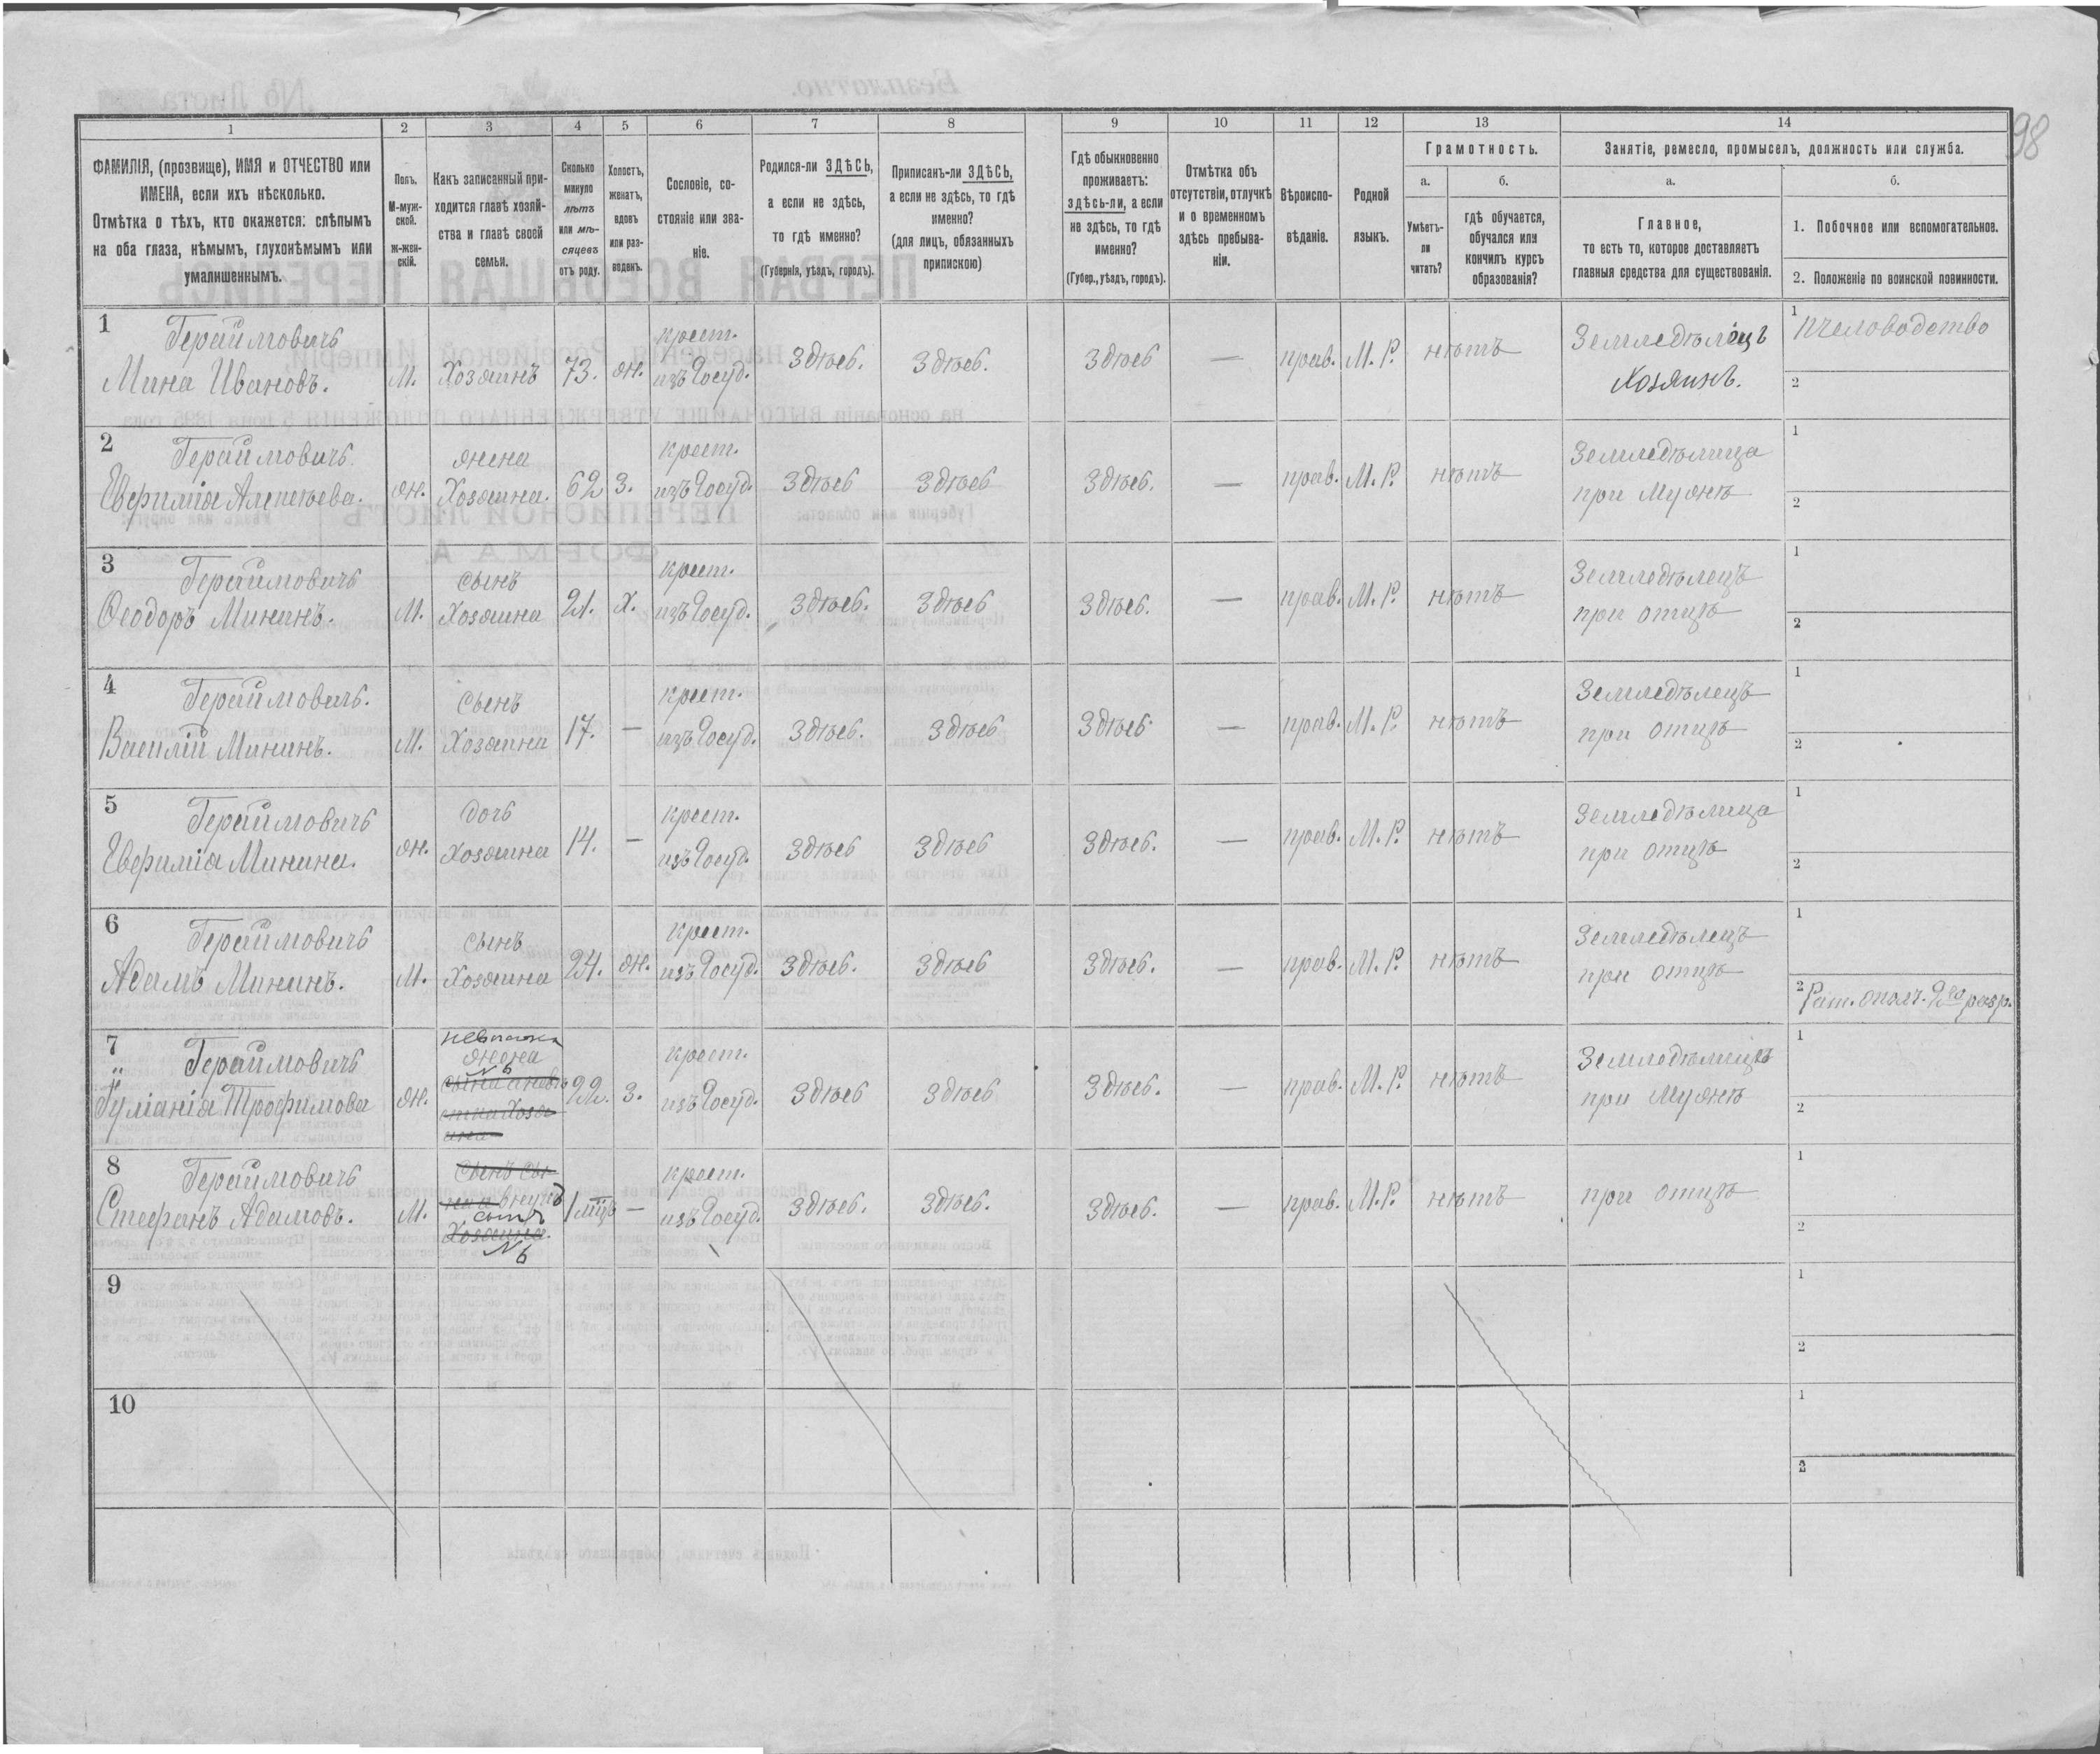 98
1 2 3 4 5 6 7 8 9 10 11 12 13 14
ФАМИЛІЯ, (прозвище), ИМЯ и ОТЧЕСТВО или
ИМЕНА, если ихъ нѣсколько.
Отмѣтка о тѣхъ, кто окажется: слѣпымъ
на оба глаза, нѣмымъ, глухонѣмымъ или
умалишеннымъ.
Полъ.
М-муж-
ской.
ж-жен-
скій.
Какъ записанный при-
ходится главѣ хозяй-
ства и главѣ своей
семьи.
Сколько
минуло
лѣтъ
или мѣ-
сяцевъ
отъ роду.
Холостъ,
женатъ,
вдовъ
или раз-
веденъ.
Сословіе, со-
стояніе или зва-
ніе.
Родился-ли ЗДѢСЬ,
а если не здѣсь,
то гдѣ именно?
(Губернія, уѣздъ, городъ).
Приписанъ-ли ЗДѢСЬ,
а если не здѣсь, то гдѣ
именно?
(для лицъ, обязанныхъ
припискою)
Гдѣ обыкновенно
проживаетъ:
здѣсь-ли, а если
не здѣсь, то гдѣ
именно?
(Губер., уѣздъ, городъ).
Отмѣтка объ
отсутствіи, отлучкѣ
и о временномъ
здѣсь пребыва-
ніи.
Вѣроиспо-
вѣданіе.
Родной
языкъ.
Грамотность.
а.
Умѣетъ-
ли
читать?
б.
гдѣ обучается,
обучался или
кончилъ курсъ
образованія?
Занятіе, ремесло, промыселъ, должность или служба.
а.
Главное,
то есть то, которое доставляетъ
главныя средства для существованія.
б.
1. Побочное или вспомогательное.
2. Положеніе по воинской повинности.
1 Гераймовичъ крест. Земледѣлецъ 1 Пчеловодство
Мина Ивановъ. М. Хозяинъ 73. ж. изъ Госуд. Здѣсь. Здѣсь. Здѣсь — прав. М.Р. нѣтъ Хозяинъ. 2
2 Гераймовичъ. жена крест. Земледѣлица 1
Евфимія Алексѣева. ж. Хозяина. 62 З. изъ Госуд. Здѣсь Здѣсь Здѣсь. — прав. М.Р. нѣтъ при Мужѣ 2
3 Гераймовичъ сынъ крест. Земледѣлецъ 1
Ѳеодоръ Мининъ. М. Хозяина 21. Х. изъ Госуд. Здѣсь. Здѣсь Здѣсь. — прав. М.Р. нѣтъ при отцѣ 2
4 Гераймовичъ. сынъ крест. Земледѣлецъ 1
Василій Мининъ. М. Хозяина 17. — изъ Госуд. Здѣсь. Здѣсь Здѣсь — прав. М.Р. нѣтъ при отцѣ 2
5 Гераймовичъ дочь крест. Земледѣлица 1
Евфимія Минина. ж. Хозяина 14. — изъ Госуд. Здѣсь Здѣсь Здѣсь. — прав. М.Р. нѣтъ при отцѣ 2
6 Гераймовичъ сынъ крест. Земледѣлецъ 1
Адамъ Мининъ. М. Хозяина 24. ж. изъ Госуд. Здѣсь. Здѣсь Здѣсь. — прав. М.Р. нѣтъ при отцѣ 2 Рат. опол. 2го разр.
7 Гераймовичъ жена №6 крест. Земледѣлица 1
Іуліанія Трофимова ж. сына 22. З. изъ Госуд. Здѣсь Здѣсь Здѣсь. — прав. М.Р. нѣтъ при Мужѣ 2
8 Гераймовичъ сынъ сы- крест. 1
Стефанъ Адамовъ. М. на а внукъ 1 мцъ — изъ Госуд. Здѣсь. Здѣсь. Здѣсь. — прав. М.Р. нѣтъ при отцѣ 2
сынъ
Хозяина.
№6
9 1
2
10 1
2